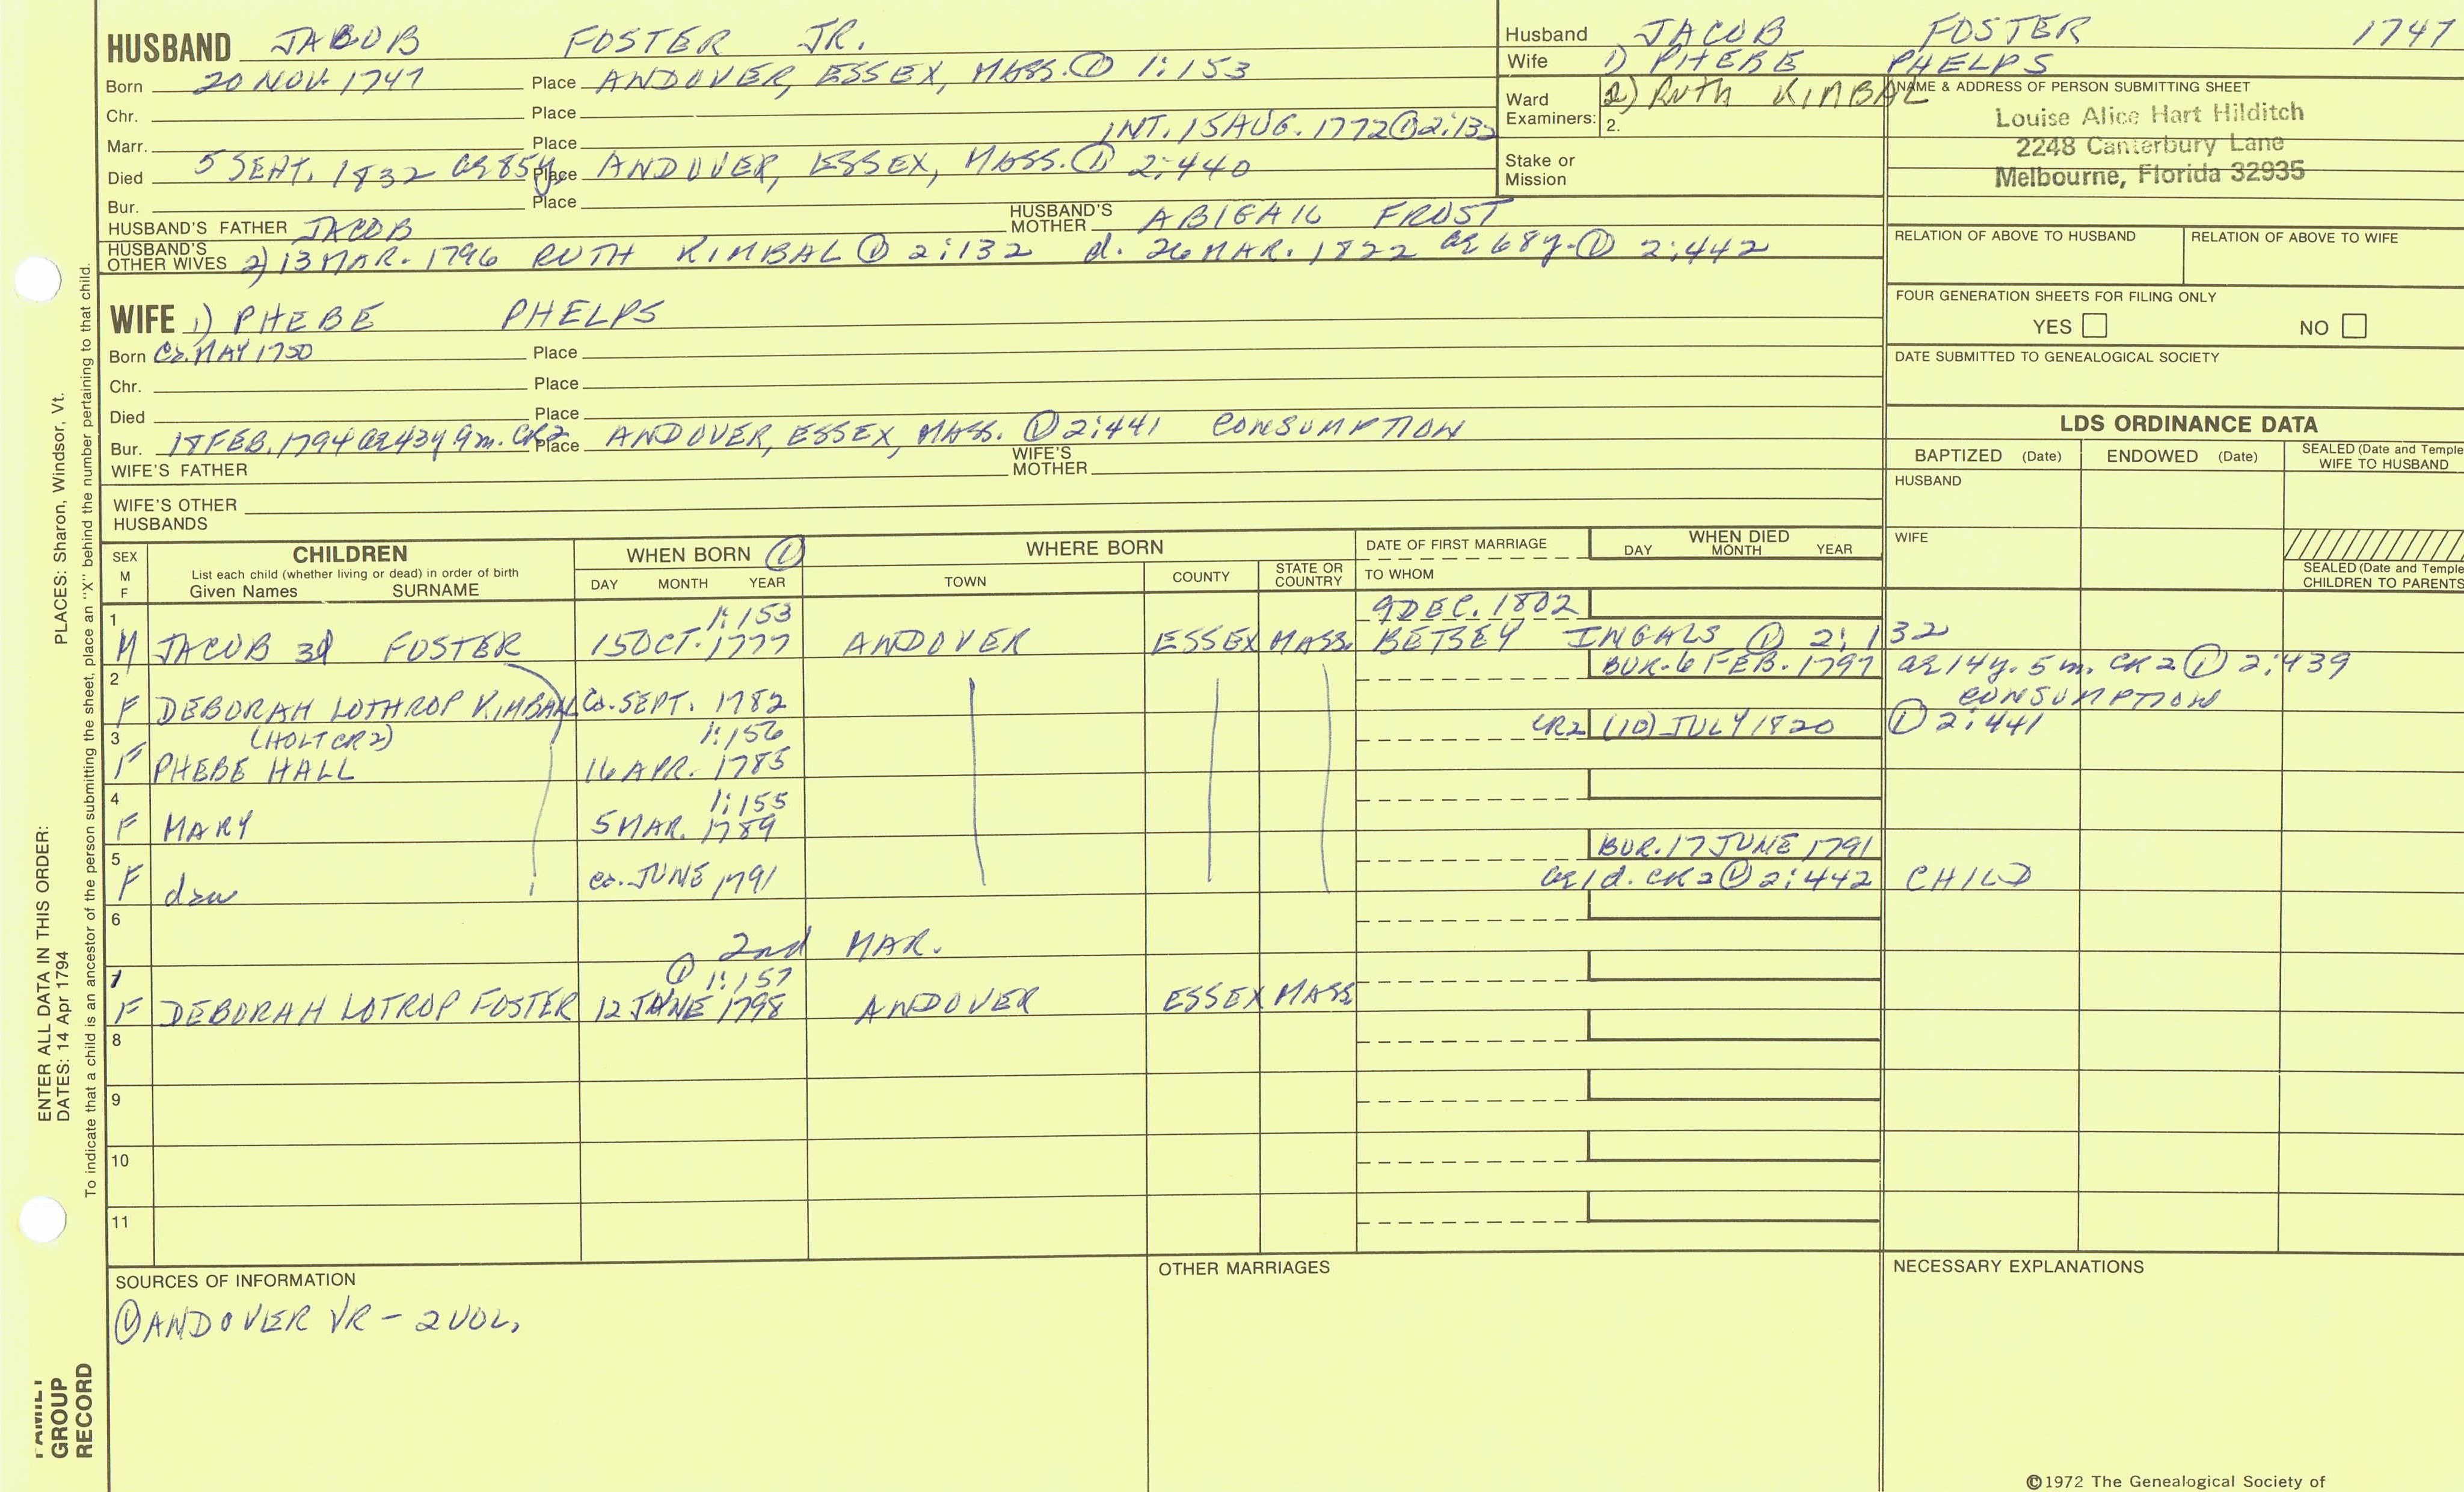 HUSBAND JACOB FOSTER JR.
Born 20 NOV. 1747 Place ANDOVER, ESSEX, MASS. ① 1:153
Chr. Place
Marr. Place INT. 15 AUG. 1772 ① 2:132
Died 5 SEPT. 1832 ae 85y. Place ANDOVER, ESSEX, MASS. ① 2:440
Bur. Place
HUSBAND'S FATHER JACOB HUSBAND'S MOTHER ABIGAIL FROST
HUSBAND'S OTHER WIVES 2) 13 MAR. 1796 RUTH KIMBAL ① 2:132 d. 26 MAR. 1822 ae 68y. ① 2:442
WIFE 1) PHEBE PHELPS
Born Ca. MAY 1750 Place
Chr. Place
Died Place
Bur. 18 FEB. 1794 ae 43y 9m. CR2 Place ANDOVER, ESSEX, MASS. ① 2:441 CONSUMPTION
WIFE'S FATHER WIFE'S MOTHER
WIFE'S OTHER HUSBANDS
Husband JACOB FOSTER 1747
Wife 1) PHEBE PHELPS
Ward Examiners: 2) RUTH KIMBAL
2.
Stake or Mission
NAME & ADDRESS OF PERSON SUBMITTING SHEET
Louise Alice Hart Hilditch
2248 Canterbury Lane
Melbourne, Florida 32935
RELATION OF ABOVE TO HUSBAND RELATION OF ABOVE TO WIFE
FOUR GENERATION SHEETS FOR FILING ONLY
YES NO
DATE SUBMITTED TO GENEALOGICAL SOCIETY
LDS ORDINANCE DATA
BAPTIZED (Date) ENDOWED (Date) SEALED (Date and Temple WIFE TO HUSBAND
HUSBAND
WIFE
SEALED (Date and Temple CHILDREN TO PARENTS
SEX M F
CHILDREN
List each child (whether living or dead) in order of birth
Given Names SURNAME
WHEN BORN ①
DAY MONTH YEAR
WHERE BORN
TOWN COUNTY STATE OR COUNTRY
DATE OF FIRST MARRIAGE
TO WHOM
WHEN DIED
DAY MONTH YEAR
1 1:153 9 DEC. 1802
M JACOB 3d FOSTER 15 OCT. 1777 ANDOVER ESSEX MASS. BETSEY INGALS ① 2:132
2 BUR. 6 FEB. 1797 ae 14y. 5m. CR2 ① 2:439
F DEBORAH LOTHROP KIMBALL Ca. SEPT. 1782 CONSUMPTION
3 (HOLT CR2) 1:156 CR2 (10) JULY 1820 ① 2:441
F PHEBE HALL 16 APR. 1785
4 1:155
F MARY 5 MAR. 1789
5 BUR. 17 JUNE 1791
F dau ca. JUNE 1791 ae 1d. CR2 ① 2:442 CHILD
6
2nd MAR.
7 ① 1:157
F DEBORAH LOTROP FOSTER 12 JUNE 1798 ANDOVER ESSEX MASS
8
9
10
11
SOURCES OF INFORMATION
① ANDOVER VR - 2 VOL,
OTHER MARRIAGES
NECESSARY EXPLANATIONS
©1972 The Genealogical Society of
ENTER ALL DATA IN THIS ORDER:
DATES: 14 Apr 1794 PLACES: Sharon, Windsor, Vt.
To indicate that a child is an ancestor of the person submitting the sheet, place an "X" behind the number pertaining to that child.
FAMILY
GROUP
RECORD